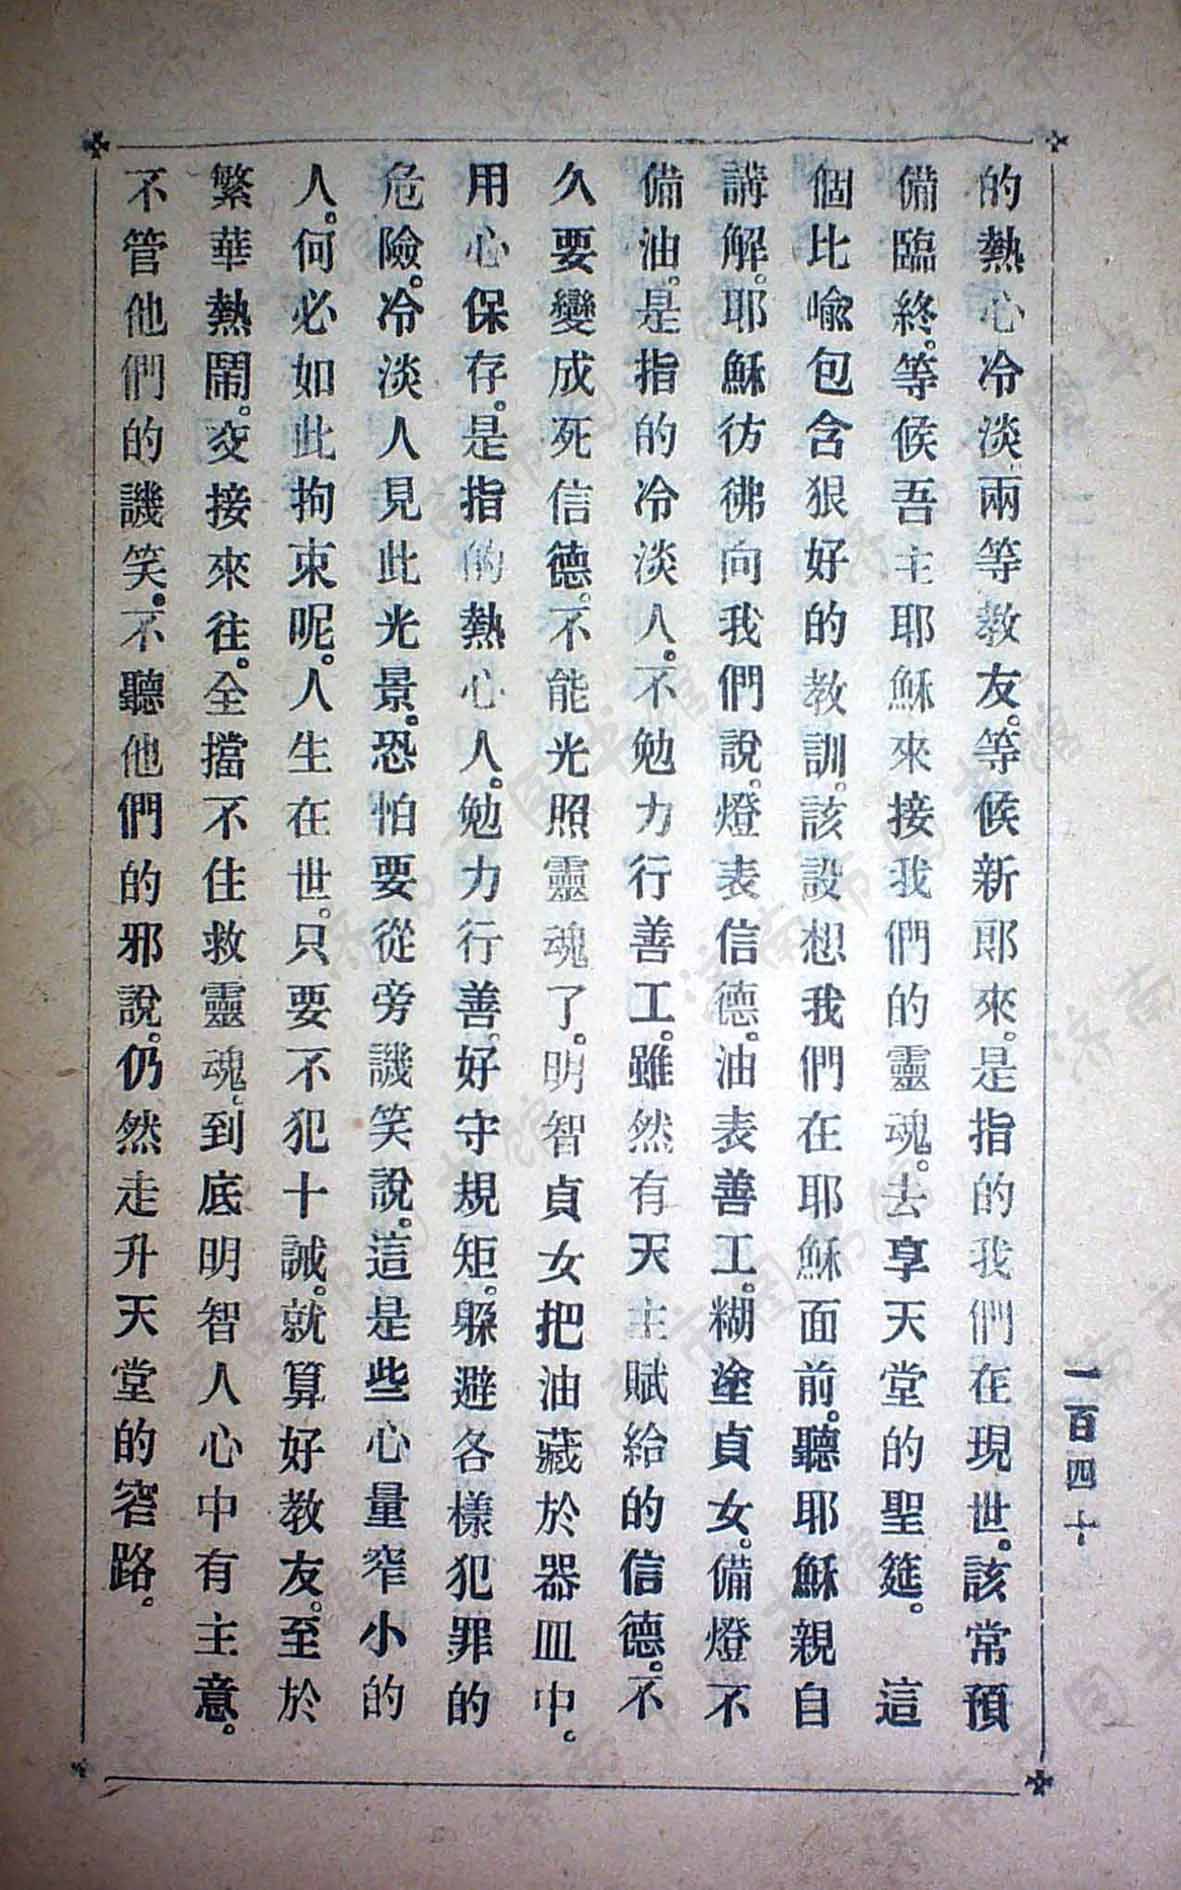 的熱心冷淡兩等教友。等候新郎來。是指的我們在現世。該常預
備臨終。等候吾主耶穌來接我們的靈魂。去享天堂的聖筵。 這
個比喩包含狠好的教訓。該設想我們在耶穌面前。聽耶穌親自
講解。耶穌彷彿向我們說。燈表信德。油表善工。糊塗貞女。備燈不
備油。是指的冷淡人。不勉力行善工。雖然有天主賦給的信德。不
久要變成死信德。不能光照靈魂了。明智貞女把油藏於器皿中。
用心保存。是指的熱心人。勉力行善。好守規矩。躲避各樣犯罪的
危險。冷淡人見此光景。恐怕要從旁譏笑說。這是些心量窄小的
人。何必如此拘束呢。人生在世。只要不犯十誡。就算好教友。至於
繁華熱鬧。交接來往。全擋不住救靈魂。到底明智人心中有主意。
不管他們的譏笑。不聽他們的邪說。仍然走升天堂的窄路。
一百四十
濟南市图书馆